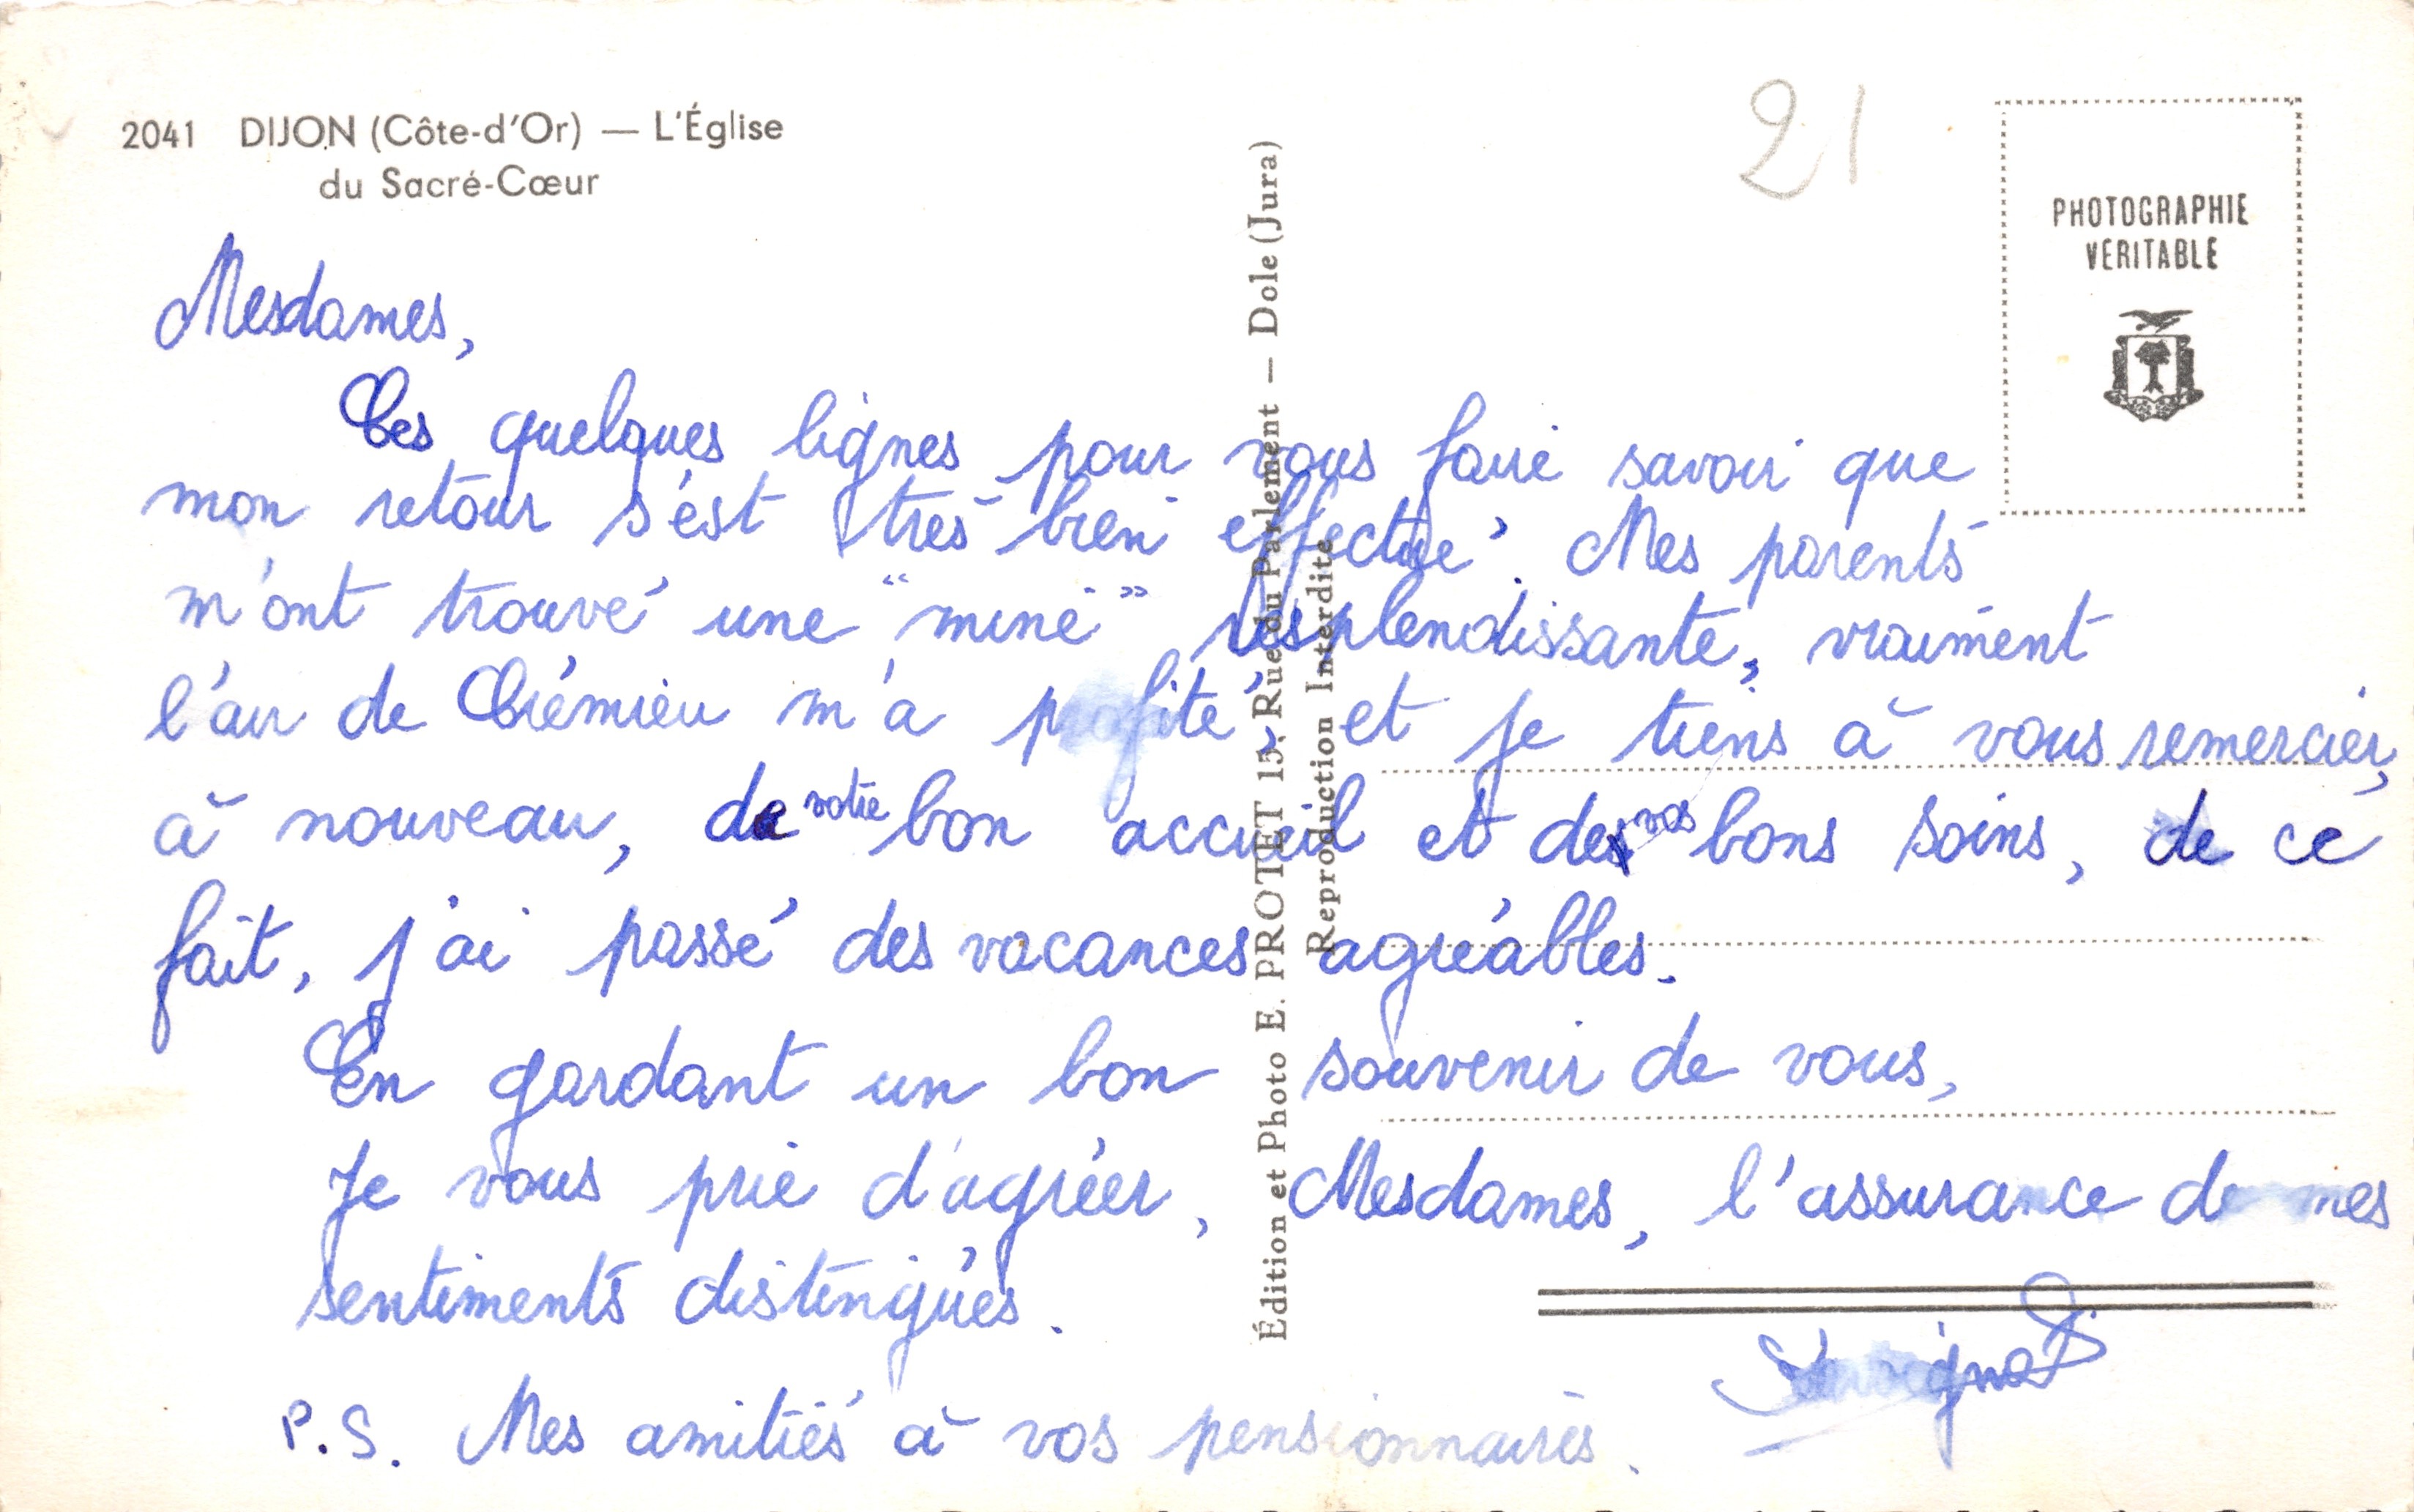 2041 DIJON (Côte-d'Or) — L'Église
du Sacré-Cœur
21
PHOTOGRAPHIE
VÉRITABLE
Édition et Photo E. PROTET 15, Rue du Parlement — Dole (Jura)
Reproduction Interdite
Mesdames,
Ces quelques lignes pour vous faire savoir que
mon retour s'est très bien effectué. Mes parents
m'ont trouvé une "mine" resplendissante, vraiment
l'air de Crémieu m'a profité, et je tiens à vous remercier,
à nouveau, de votre bon accueil et de vos bons soins, de ce
fait, j'ai passé des vacances agréables.
En gardant un bon souvenir de vous,
Je vous prie d'agréer, Mesdames, l'assurance de mes
sentiments distingués.
P.S. Mes amitiés à vos pensionnaires.